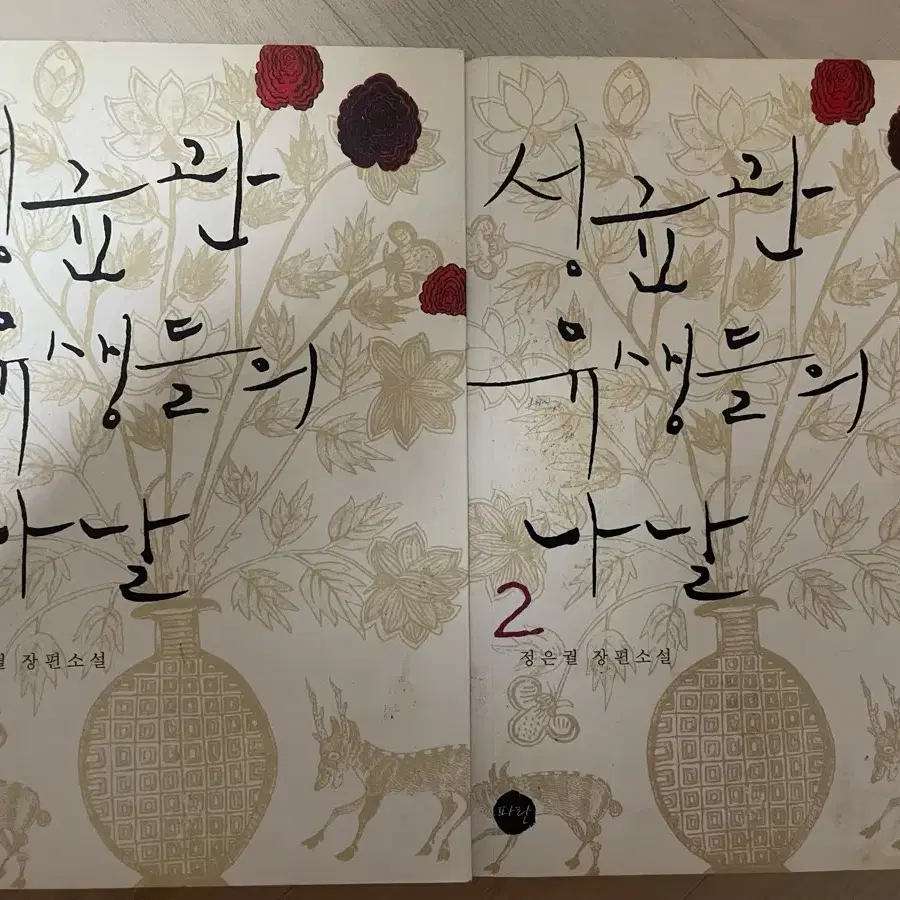 성균관
유생들의
나날
궐 장편소설
성균관
유생들의
나날
2
정은궐 장편소설
파란